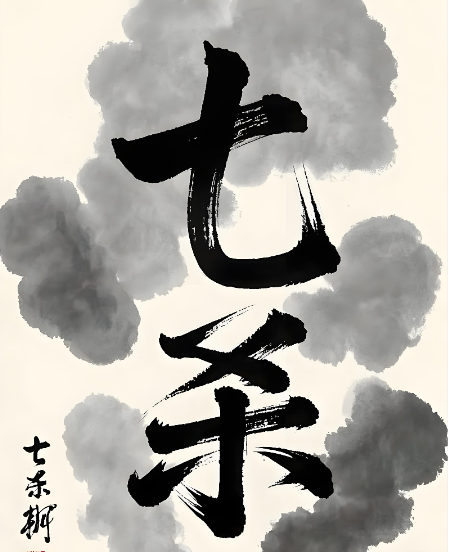 七杀
七杀